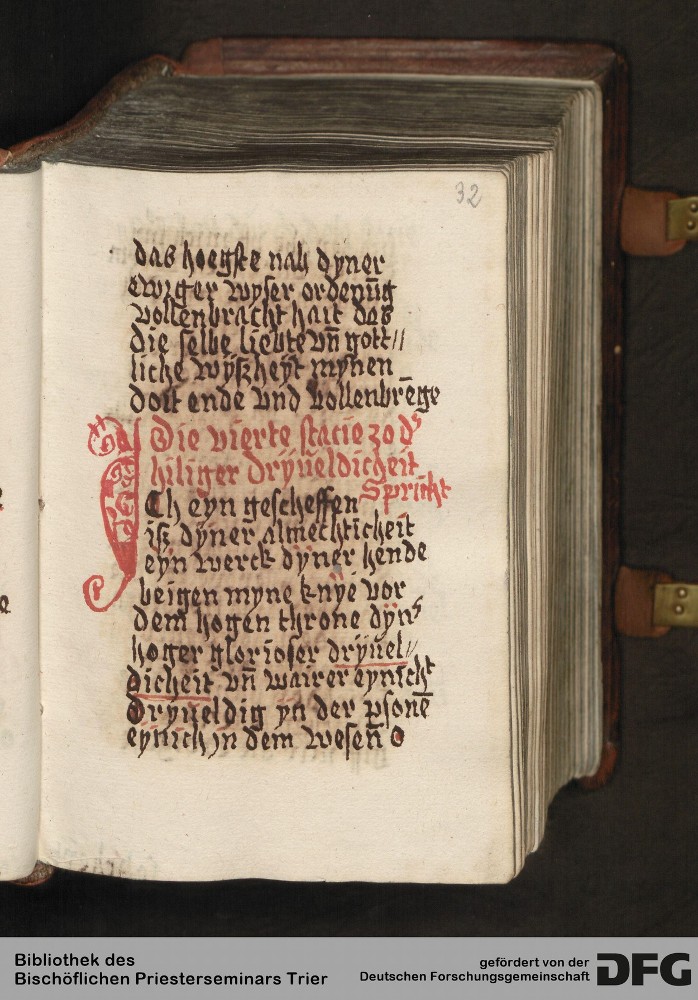 32
das hoegste nah dyner
ewiger wyser ordenu̅g
vollenbracht hait das
die selbe liebte vn̅ gott//
liche wyßheyt mynen
doit ende vnd vollenbre̅ge
Die vierte stacie zo d'
hiliger dryüeldicheit
Spricht
Ich eyn gescheffen
iß dyner almechticheit
eyn werck dyner hende
beigen myne knye vor
dem hogen throne dyn'
hoger glorioser dryüel//
dicheit vn̅ wairer eynicht
dryüeldig yn der p̲sone̅
eynich jn dem wesen̅ O
Bibliothek des
Bischöflichen Priesterseminars Trier
gefördert von der
Deutschen Forschungsgemeinschaft
DFG